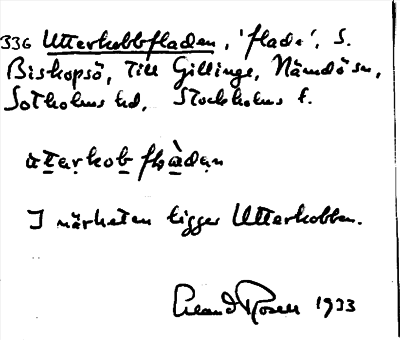 336 Utterkobbfladen, 'flade', S.
Biskopsö, till Gillinge, Nämdö sn,
Sotholms hd, Stockholms l.
ɯterkob flɑ̀dən
I närheten ligger Utterkobben.
Rosell 1933